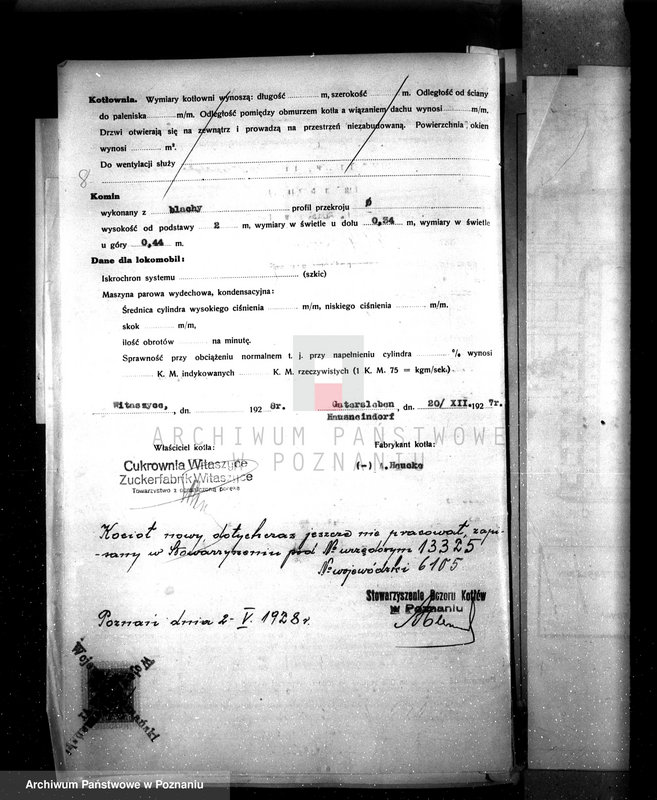 Kotłownia. Wymiary kotłowni wynoszą: długość m, szerokość m. Odległość od ściany
do paleniska m/m. Odległość pomiędzy obmurzem kotła a wiązaniem dachu wynosi m/m.
Drzwi otwierają się na zewnątrz i prowadzą na przestrzeń niezabudowaną. Powierzchnia okien
wynosi m².
Do wentylacji służy
8
Komin
wykonany z blachy profil przekroju ø
wysokość od podstawy 2 m, wymiary w świetle u dołu 0,34 m, wymiary w świetle
u góry 0,44 m.
Dane dla lokomobil:
Iskrochron systemu (szkic)
Maszyna parowa wydechowa, kondensacyjna:
Średnica cylindra wysokiego ciśnienia m/m, niskiego ciśnienia m/m.
skok m/m,
ilość obrotów na minutę.
Sprawność przy obciążeniu normalnem t. j. przy napełnieniu cylindra % wynosi
K. M. indykowanych K. M. rzeczywistych (1 K. M. 75 = kgm/sek.)
Witaszyce, dn. 192 8r. Gatersleben, dn. 20/ XII. 192 7r.
Hausneindorf
ARCHIWUM PAŃSTWOWE
W POZNANIU
Właściciel kotła: Fabrykant kotła:
Cukrownia Witaszyce (-) A.Haucke
Zuckerfabrik Witaszyce
Towarzystwo z ograniczoną poręką
Kocioł nowy, dotychczas jeszcze nie pracował, zapi-
-sany w Stowarzyszeniu pod № urzędowym 13325
№ wojewódzki 6105
Stowarzyszenie Dozoru Kotłów
w Poznaniu
Poznań dnia 2-V. 1928 r.
Archiwum Państwowe w Poznaniu